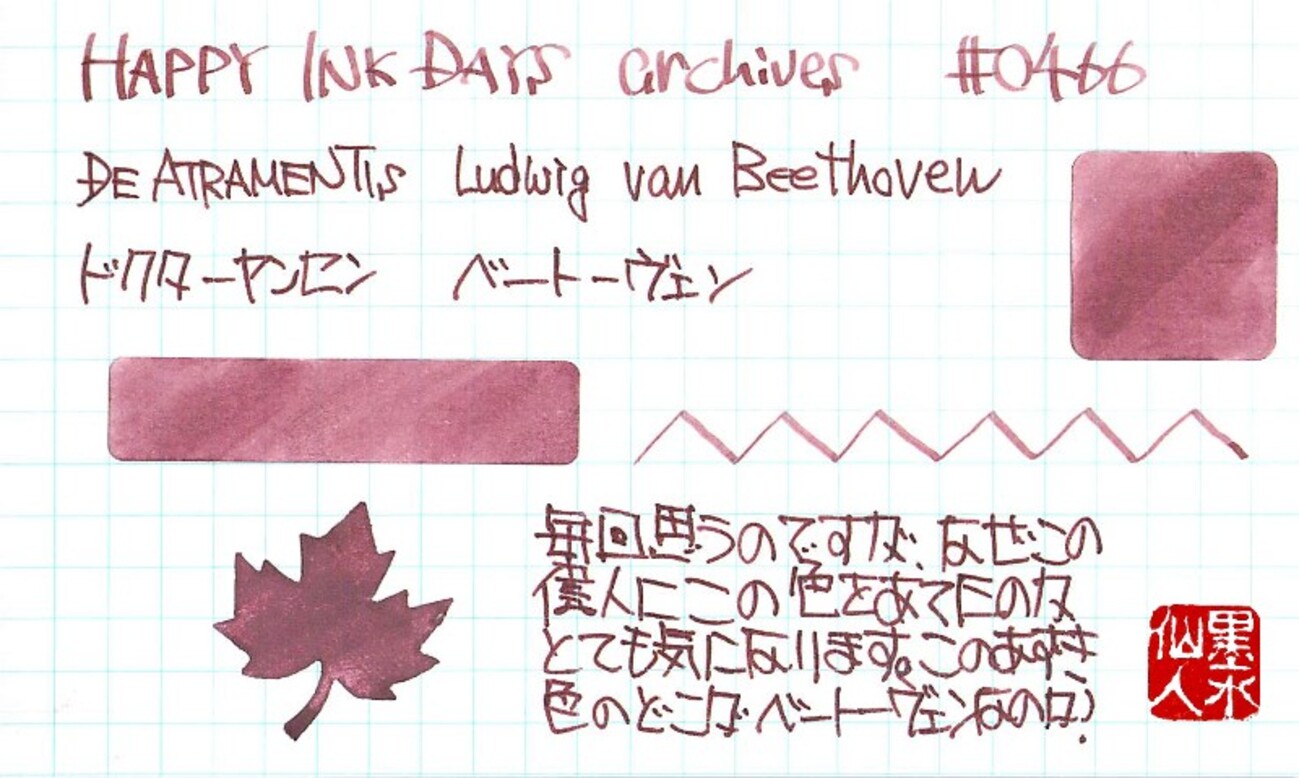 HAPPY INK DAYS archives #0466
DE ATRAMENTIS Ludwig van Beethoven
ドクターヤンセン ベートーヴェン
毎回思うのですが、なぜこの
偉人にこの色をあてたのか
とても気になります。このあずき
色のどこがベートーヴェンなのか?
墨水
仙人